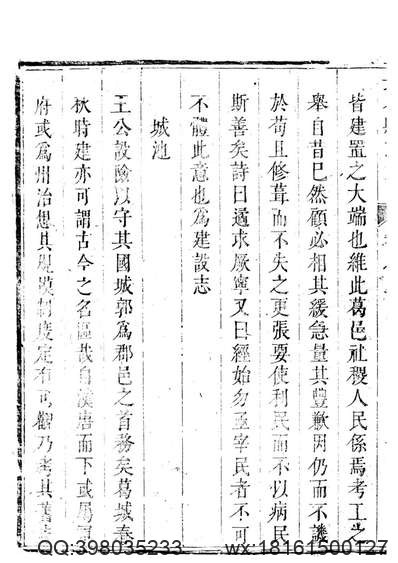 皆建置之大端也維此葛邑社稷人民係焉考工之
舉自昔已然顧必相其緩急量其豐歉因仍而不譏
於苟且修葺而不失之更張要使利民而不以病民
斯善矣詩曰遹求厥寧又曰經始勿亟宰民者不可
不體此意也為建設志
城池
王公設險以守其國城郭為郡邑之首務矣葛城春
秋時建亦可謂古今之名區哉自漢唐而下或屬軍
府或為州治想其規模制度定有可觀乃考其舊
QQ:398035233 wx:18161500127